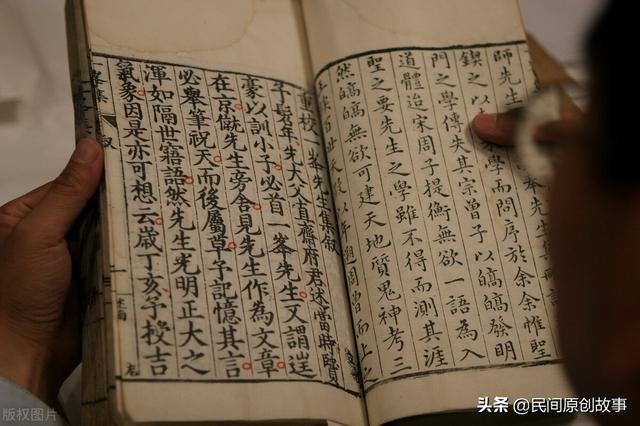 師先生
鍥之以學而問序於余余惟聖
門之學傳失其宗曾子以皜皜發明
道體迨宋周子提衡無欲一語為入
聖之要先生之學雖不得而測其涯
然皜皜無欲可建天地質鬼神考三
周曾而上之
重校峯先生集叙
予髫年先大父直齋府君述當時賢
豪以訓小子必首一峯先生又謂逞
在京僦先生旁舍見先生作為文章
必舉筆祝天而後屬草予記憶其言
渾如隔世寤語然先生光明正大之
氣象因是亦可想云歲丁亥予授吉
峯集
叙
一
版权图片
头条 @民间原创故事